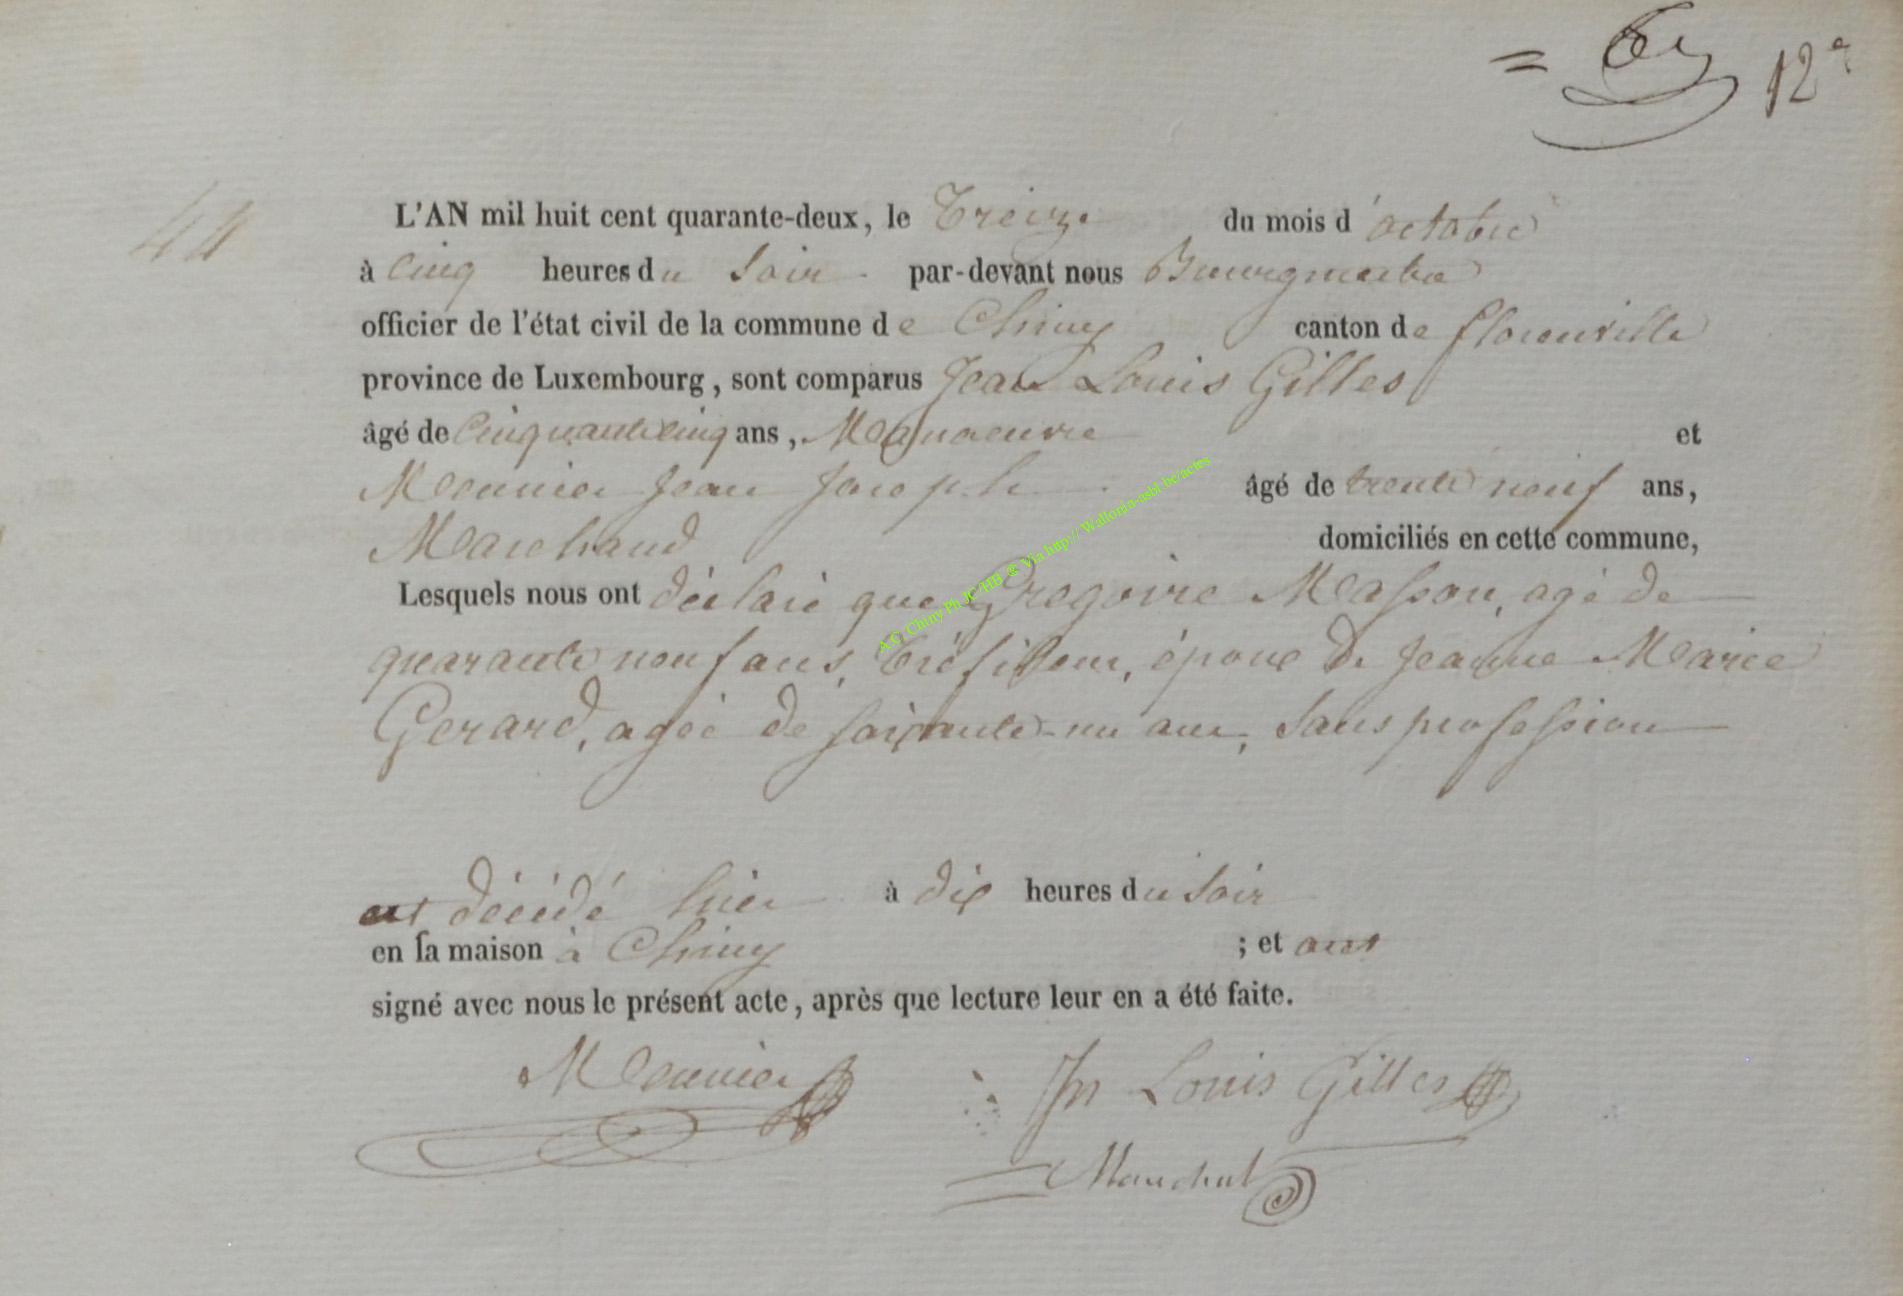 12
44
L'AN mil huit cent quarante-deux, le Treize du mois d'octobre
à Cinq heures du Soir par-devant nous Bourgmestre
officier de l'état civil de la commune de Chiny canton de florenville
province de Luxembourg, sont comparus Jean Louis Gilles
âgé de Cinquante cinq ans, Manoeuvre et
Meunier Jean Joseph âgé de trente neuf ans,
Marchand domiciliés en cette commune,
Lesquels nous ont déclaré que Gregoire Masson, agé de
quarante neuf ans, Tréfileur, époux de Jeanne Marie
Gerard, agée de soixante-un ans, Sans profession
est décédé hier à dix heures du Soir
en sa maison à Chiny ; et ont
signé avec nous le présent acte, après que lecture leur en a été faite.
Meunier Jn Louis Gilles
A C Chiny Ph JC HB @ Via http:// Wallonia-asbl-be/actes